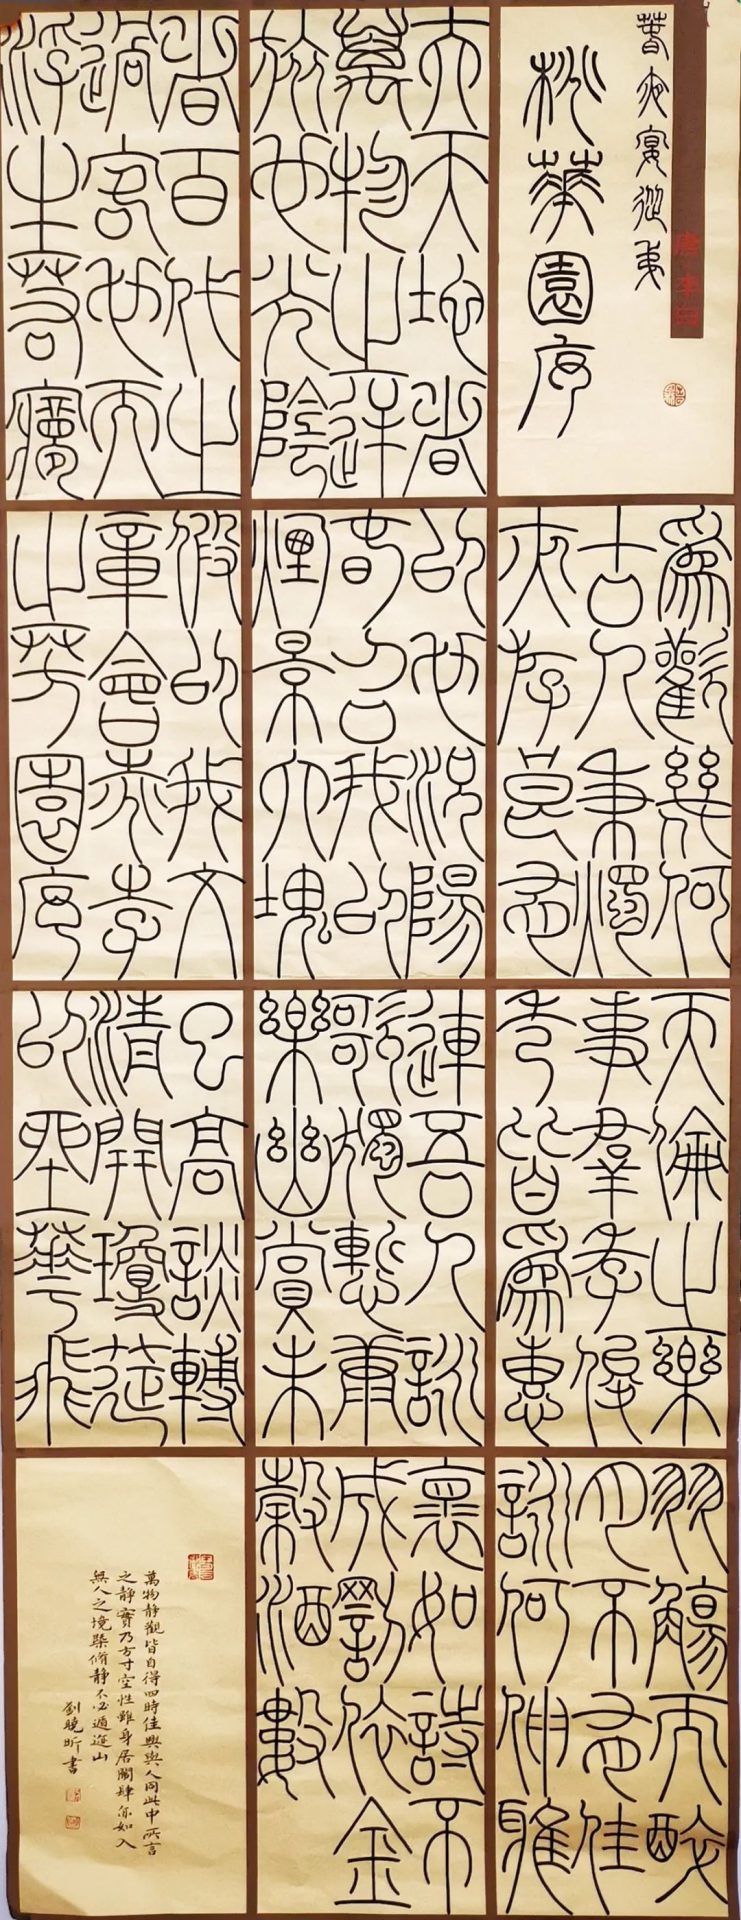 唐 李白
春夜宴從弟
桃華園序
夫天地者
萬物之逆
旅也光陰
者百代之
過客也而
浮生若夢
爲歡幾何
古人秉燭
夜游良有
以也況陽
春召我以
煙景大塊
假以我文
章會桃李
之芳園序
天倫之樂
事群季俊
秀皆爲惠
連吾人詠
歌獨慙康
樂幽賞未
已高談轉
清開瓊筵
以坐華飛
羽觴而醉
月不有佳
詠何伸雅
褱如詩不
成罰依金
穀酒數
萬物靜觀皆自得四時佳興與人同此中所言
之靜實乃方寸空性雖身居闤肆亦如入
無人之境槩脩靜不必遁迹山
劉曉昕書